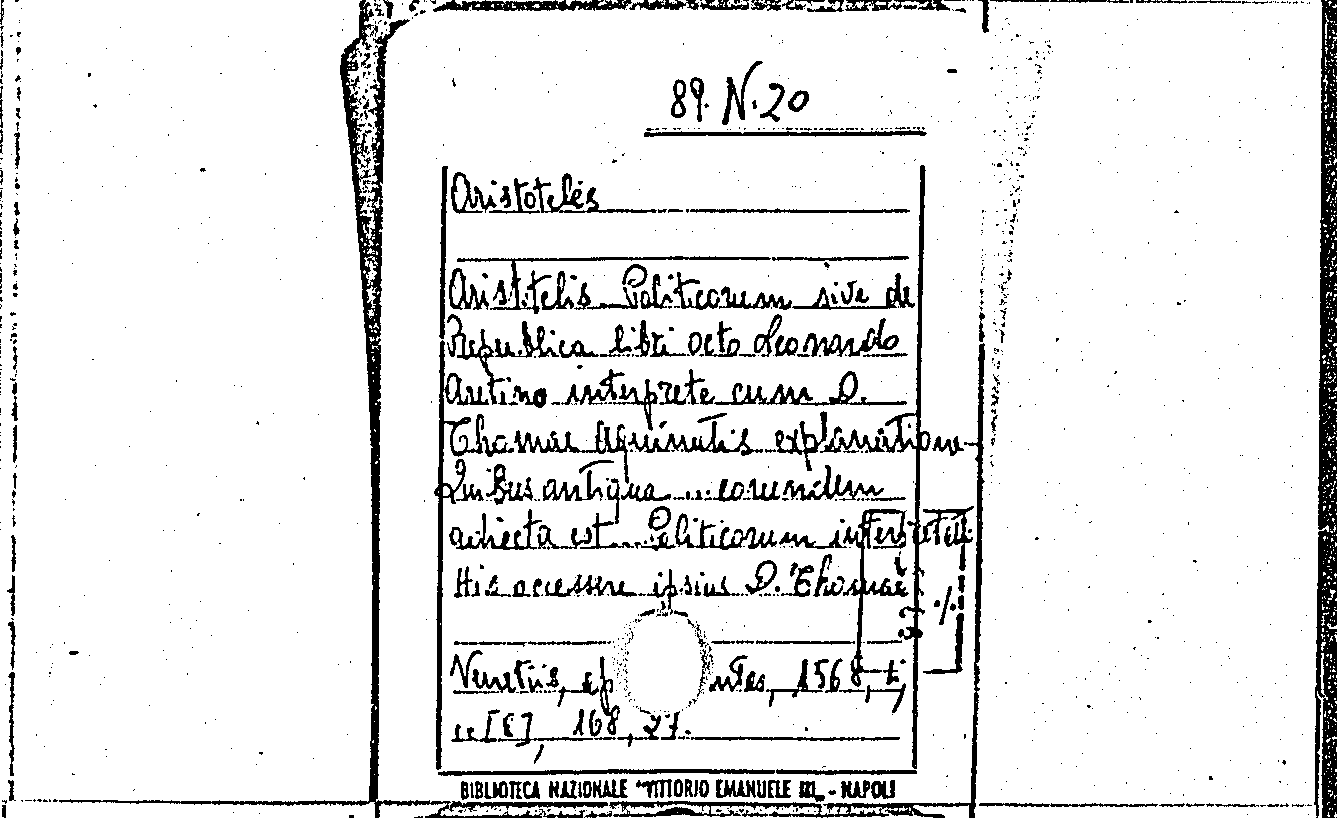 89. N. 20
Aristoteles
Aristotelis Politicorum sive de
Republica libri octo Leonardo
Aretino interprete cum D.
Thomae Aquinatis explanatione
Quibus antiqua ... eorumdem
adiecta est ... Politicorum
His accessere ipsius D. Thomae
Venetiis, 1568,
cc [8], 168, 27.
BIBLIOTECA NAZIONALE "VITTORIO EMANUELE III„ - NAPOLI